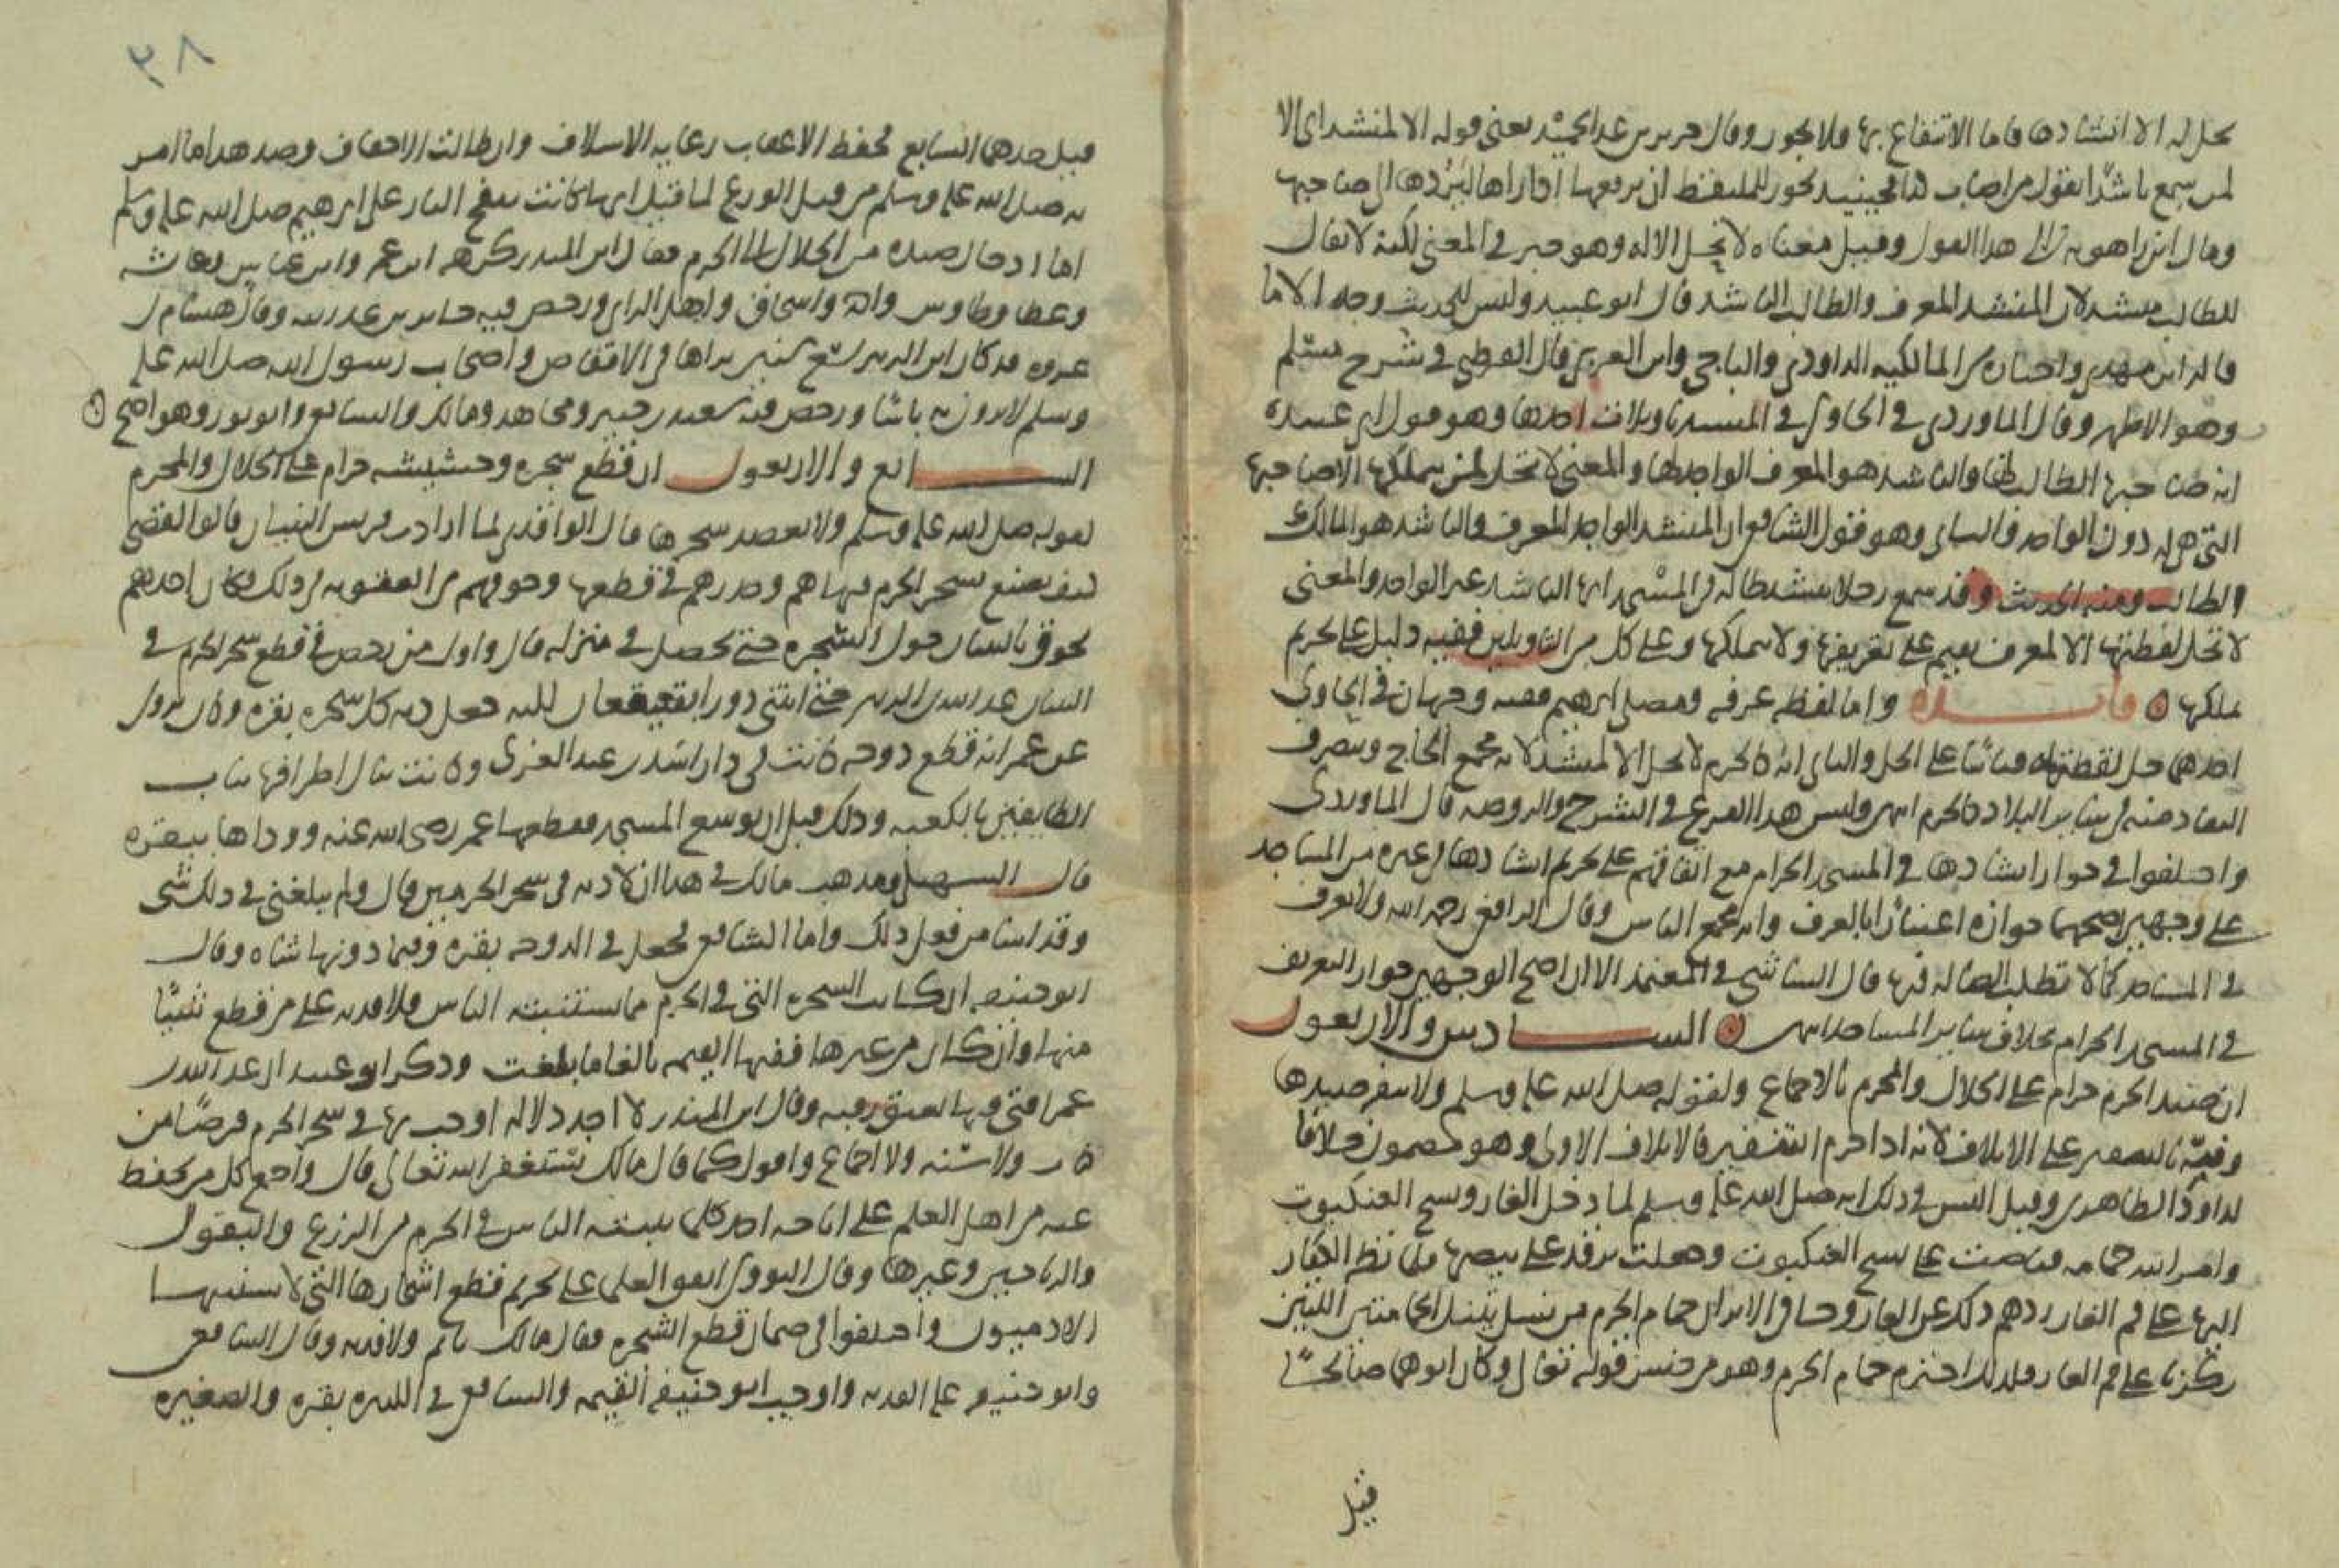 يحل له الا انشادها فاما الانتفاع بها فلا يجوز وقال جرير بن عبد الحميد يعني قوله الا لمنشد اي الا
لمن سمع ناشدا يقول من اصاب كذا فحينيد يجوز للملتقط ان يرفعها اذا راها ليردها الى صاحبها
ومال ابن راهويه الى هذا القول وقيل معناه لا تحل الا له وهو خير في المعنى لكنه لا يقال
للطالب منشد لان المنشد المعرف والطالب الناشد قال ابو عبيد وليس للحديث وجه الا ما
قاله ابن مهدي واختاره من المالكيه الداودي والباجي وابن العربي قال القرطبي في شرح مسلم
وهو الاظهر وقال الماوردي في الحاوي في المنشد تاويلان احدها وهو قول ابي عبيده
انه صاحبها الطالب لها والناشد هو المعرف الواجد لها والمعنى لا تحل لمن يتملكها الا صاحبها
التي هي له دون الواجد والثاني وهو قول الشافعي ان المنشد الواجد المعرف والناشد هو المالك
والطالب ومنه الحديث وقد سمع رجلا ينشد ضالة في المسجد ايها الناشد غيرك الواجد والمعنى
لا تحل لقطتها الا لمعرف يقيم على تعريفها ولا يتملكها وعلى كل من التاويلين ففيه دليل على تحريم
تملكها فايده واما لقطه عرفه ومصلى ابرهيم ففيه وجهان في الحاوي
احدهما حل لقطتها قياسا على الحل والثاني انه كالحرم لا تحل الا لمنشد لانه مجمع الحاج وينصرف
النفاد منه في ساير البلاد كالحرم انتهى وليس هذا الفرع في الشرح والروضه قال الماوردي
واختلفوا في جواز انشادها في المسجد الحرام مع اتفاقهم على تحريم انشادها في غيره من المساجد
على وجهين اصحهما جوازه اعتبارا بالعرف وانه مجمع الناس وقال الرافعي رحمه الله ولا يعرف
في المساجد كما لا تطلب الضاله فيها قال الشاشي في المعتمد الا ان اصح الوجهين جواز التعريف
في المسجد الحرام بخلاف ساير المساجد انتهى السادس والاربعون
ان صيد الحرم حرام على الحلال والمحرم بالاجماع ولقوله صلى الله عليه وسلم ولا ينفر صيدها
ونبه بالتنفير على الاتلاف لانه اذا حرم التنفير فالاتلاف الاولى وهو مضمون خلافا
لداود الظاهري وقيل السر في ذلك انه صلى الله عليه وسلم لما دخل الغار ونسج العنكبوت
وامر الله حمامه فباضت على نسج العنكبوت وجعلت ترقد على بيضها فلما نظر الكفار
اليها على فم الغار ردهم ذلك عن الغار وحسا في الانزال حمام الحرم من نسل تينك الحمامتين اللتين
ركزتا على فم الغار فلذلك احترم حمام الحرم وهو من جنس قوله تعالى وكان ابوهما صالحا
قيل
٣٨
قيل جدهما السابع فحفظ الاعقاب رعايه الاسلاف وان طالت الاحقاف وضد هذا ما امر
به صلى الله عليه وسلم من قتل الوزغ لما قيل انها كانت تنفخ النار على ابرهيم صلى الله عليه وسلم
اما ادخال صيده من الحلال الى الحرم فقال ابن المنذر كرهه ابن عمر وابن عباس وعايشه
وعطا وطاوس واحمد واسحاق واهل الراي ورخص فيه جابر بن عبد الله وقال هشام بن
عروه قد كان ابن الزبير تسع سنين يراها في الاقفاص واصحاب رسول الله صلى الله عليه
وسلم لا يرون به باسا ورخص فيه سعيد بن جبير ومجاهد ومالك والشافعي وابو ثور وهو اصح
السابع والاربعون ان قطع شجره وحشيشه حرام على الحلال والمحرم
لقوله صلى الله عليه وسلم ولا يعضد شجرها قال الواقدي لما ارادت قريش البنيان قالوا لقصي
كيف نصنع بشجر الحرم فنهاهم وحذرهم في قطعها وخوفهم من العقوبه في ذلك فكان احدهم
يحوق بالبنيان حول الشجره حتى تحصل في منزله قال واول من رخص في قطع شجر الحرم في
البنيان عبد الله بن الزبير حتى ابتنى دورا بقعيقعان لكنه جعل ديه كل شجره بقره وكان يروى
عن عمر انه قطع دوحه كانت في دار اسد بن عبد العزى وكانت تنال اطرافها ثياب
الطايفين بالكعبه وذلك قبل ان يوسع المسجد فقطعها عمر رضي الله عنه ووداها ببقره
قال السهيلي ومذهب مالك في هذا ان لا ديه في شجر الحرمين قال ولم يبلغني في ذلك شي
وقد اسا من فعل ذلك واما الشافعي فجعل في الدوحه بقره وفيما دونها شاه وقال
ابو حنيفه ان كانت الشجره التي في الحرم مما يستنبته الناس فلا فديه على من قطع شيئا
منها وان كان من غيرها ففيها القيمه بالغا ما بلغت وذكر ابو عبيد ان عبد الله بن
عمر افتى فيها بعتق رقبه وقال ابن المنذر لا اجد دلاله اوجب بها في شجر الحرم فرضا من
كتاب ولا سنه ولا اجماع واقول كما قال مالك يستغفر الله تعالى قال واجمع كل من يحفظ
عنه من اهل العلم على اباحه اخذ كلما ينبته الناس في الحرم من الزرع والبقول
والرياحين وغيرها وقال النووي اتفق العلما على تحريم قطع اشجارها التي لا يستنبتها
الادميون واختلفوا في ضمان قطع الشجره فقال مالك ياثم ولا فديه وقال الشافعي
وابو حنيفه عليه الفديه واوجب ابو حنيفه القيمه والشافعي في الكبيره بقره والصغيره